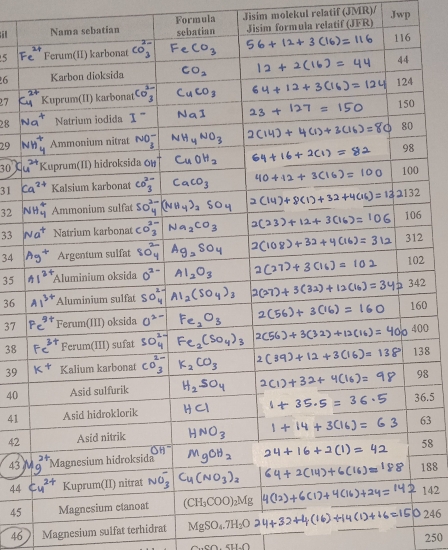 Bil Nama sebatian Formula sebatian Jisim molekul relatif (JMR)/ Jisim formula relatif (JFR) Jwp
25 Fe²⁺ Ferum(II) karbonat CO₃²⁻ FeCO₃ 56+12+3(16)=116 116
26 Karbon dioksida CO₂ 12+2(16)=44 44
27 Cu²⁺ Kuprum(II) karbonat CO₃²⁻ CuCO₃ 64+12+3(16)=124 124
28 Na⁺ Natrium iodida I⁻ NaI 23+127=150 150
29 NH₄⁺ Ammonium nitrat NO₃⁻ NH₄NO₃ 2(14)+4(1)+3(16)=80 80
30 Cu²⁺ Kuprum(II) hidroksida OH⁻ CuOH₂ 64+16+2(1)=82 98
31 Ca²⁺ Kalsium karbonat CO₃²⁻ CaCO₃ 40+12+3(16)=100 100
32 NH₄⁺ Ammonium sulfat SO₄²⁻ (NH₄)₂SO₄ 2(14)+8(1)+32+4(16)=132 132
33 Na⁺ Natrium karbonat CO₃²⁻ Na₂CO₃ 2(23)+12+3(16)=106 106
34 Ag⁺ Argentum sulfat SO₄²⁻ Ag₂SO₄ 2(108)+32+4(16)=312 312
35 Al³⁺ Aluminium oksida O²⁻ Al₂O₃ 2(27)+3(16)=102 102
36 Al³⁺ Aluminium sulfat SO₄²⁻ Al₂(SO₄)₃ 2(27)+3(32)+12(16)=342 342
37 Fe³⁺ Ferum(III) oksida O²⁻ Fe₂O₃ 2(56)+3(16)=160 160
38 Fe³⁺ Ferum(III) sufat SO₄²⁻ Fe₂(SO₄)₃ 2(56)+3(32)+12(16)=400 400
39 K⁺ Kalium karbonat CO₃²⁻ K₂CO₃ 2(39)+12+3(16)=138 138
40 Asid sulfurik H₂SO₄ 2(1)+32+4(16)=98 98
41 Asid hidroklorik HCl 1+35.5=36.5 36.5
42 Asid nitrik HNO₃ 1+14+3(16)=63 63
43 Mg²⁺ Magnesium hidroksida OH⁻ MgOH₂ 24+16+2(1)=42 58
44 Cu²⁺ Kuprum(II) nitrat NO₃⁻ Cu(NO₃)₂ 64+2(14)+6(16)=188 188
45 Magnesium etanoat (CH₃COO)₂Mg 4(12)+6(1)+4(16)+24=142 142
46 Magnesium sulfat terhidrat MgSO₄.7H₂O 24+32+4(16)+14(1)+16=150 246
CuSO₄.5H₂O 250